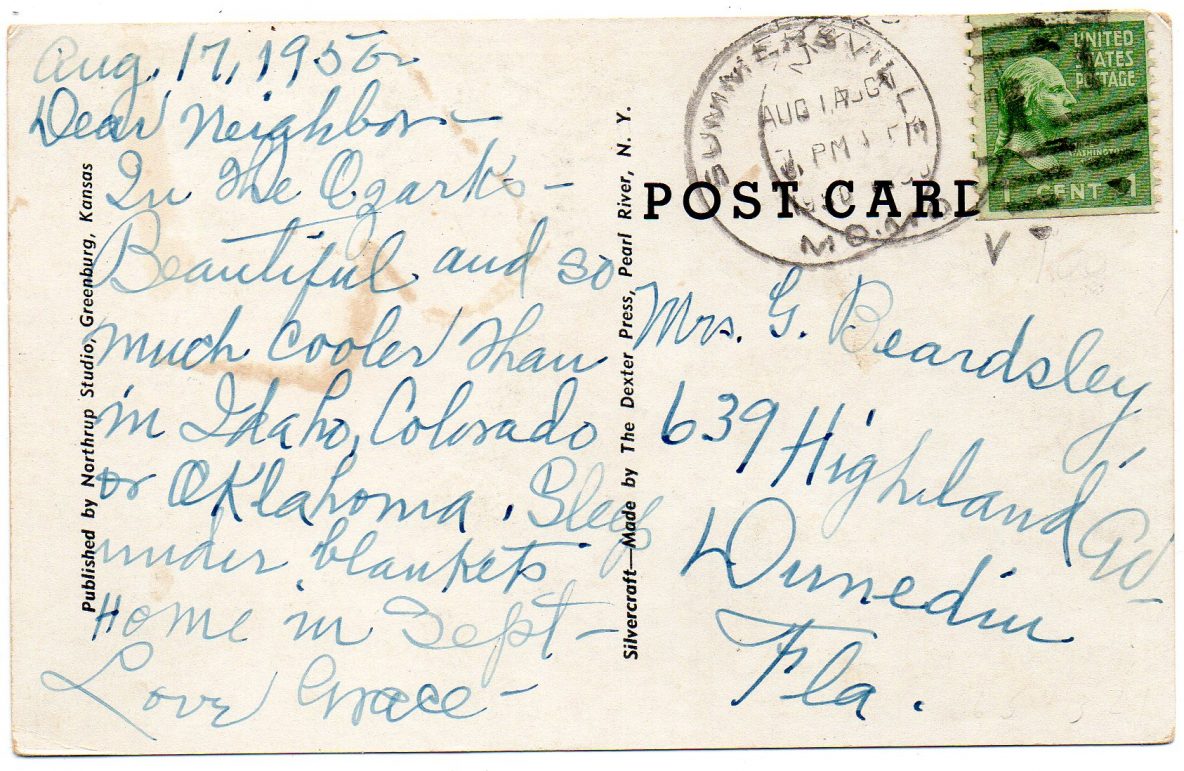 Aug. 17, 1950
Dear Neighbor—
In the Ozarks—
Beautiful and so
much cooler than
in Idaho, Colorado
or Oklahoma. Sleep
under blankets
Home in Sept—
Love Grace—
Published by Northrup Studio, Greenburg, Kansas
Silvercraft—Made by The Dexter Press, Pearl River, N. Y.
SUMMERSVILLE
AUG 17
PM
MO.
UNITED
STATES
POSTAGE
WASHINGTON
1 CENT 1
POST CARD
Mrs. G. Beardsley,
639 Highland
Dunedin
Fla.